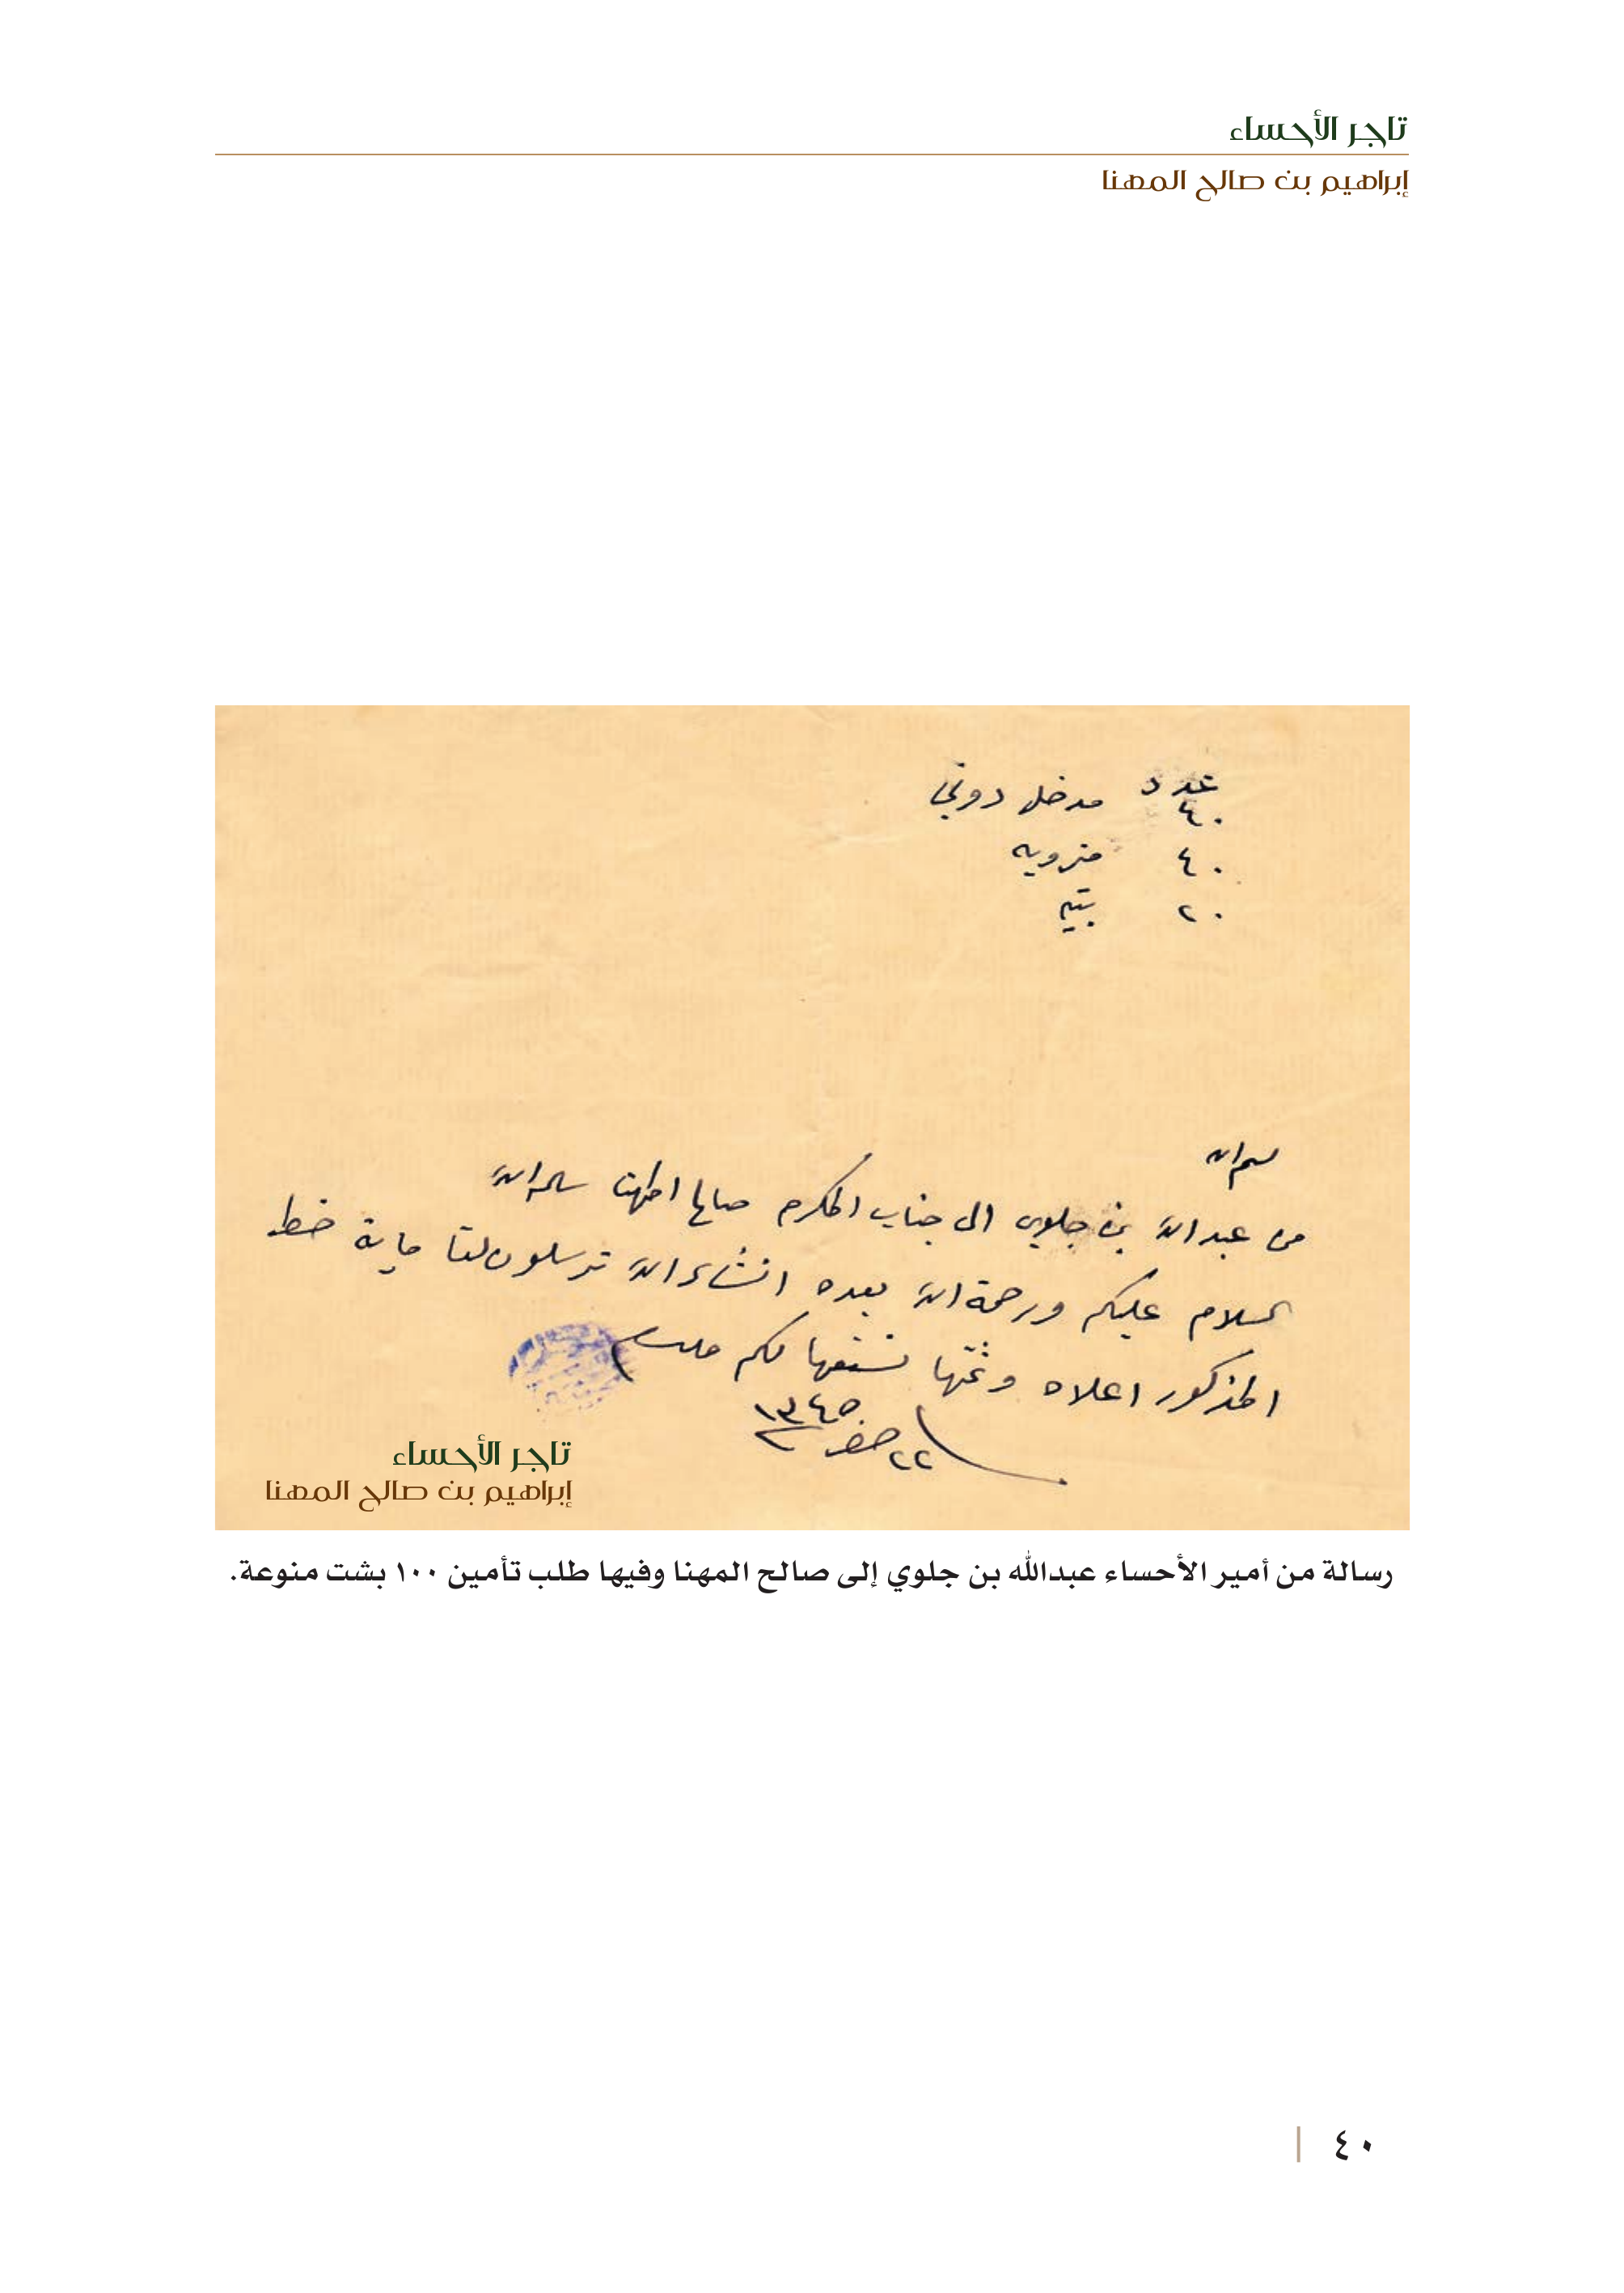 تاجر الأحساء
إبراهيم بن صالح المهنا
عدد
٤٠ مدخل دوني
٤٠
٢٠
بسم الله
من عبدالله بن جلوي الى جناب المكرم صالح المهنا سلمه الله
السلام عليكم ورحمة الله بعده انشاء الله ترسلون لنا ماية
المذكور اعلاه وثمنها لكم
٢٢ صفر ١٣٤٥
تاجر الأحساء
إبراهيم بن صالح المهنا
رسالة من أمير الأحساء عبدالله بن جلوي إلى صالح المهنا وفيها طلب تأمين ١٠٠ بشت منوعة.
٤٠